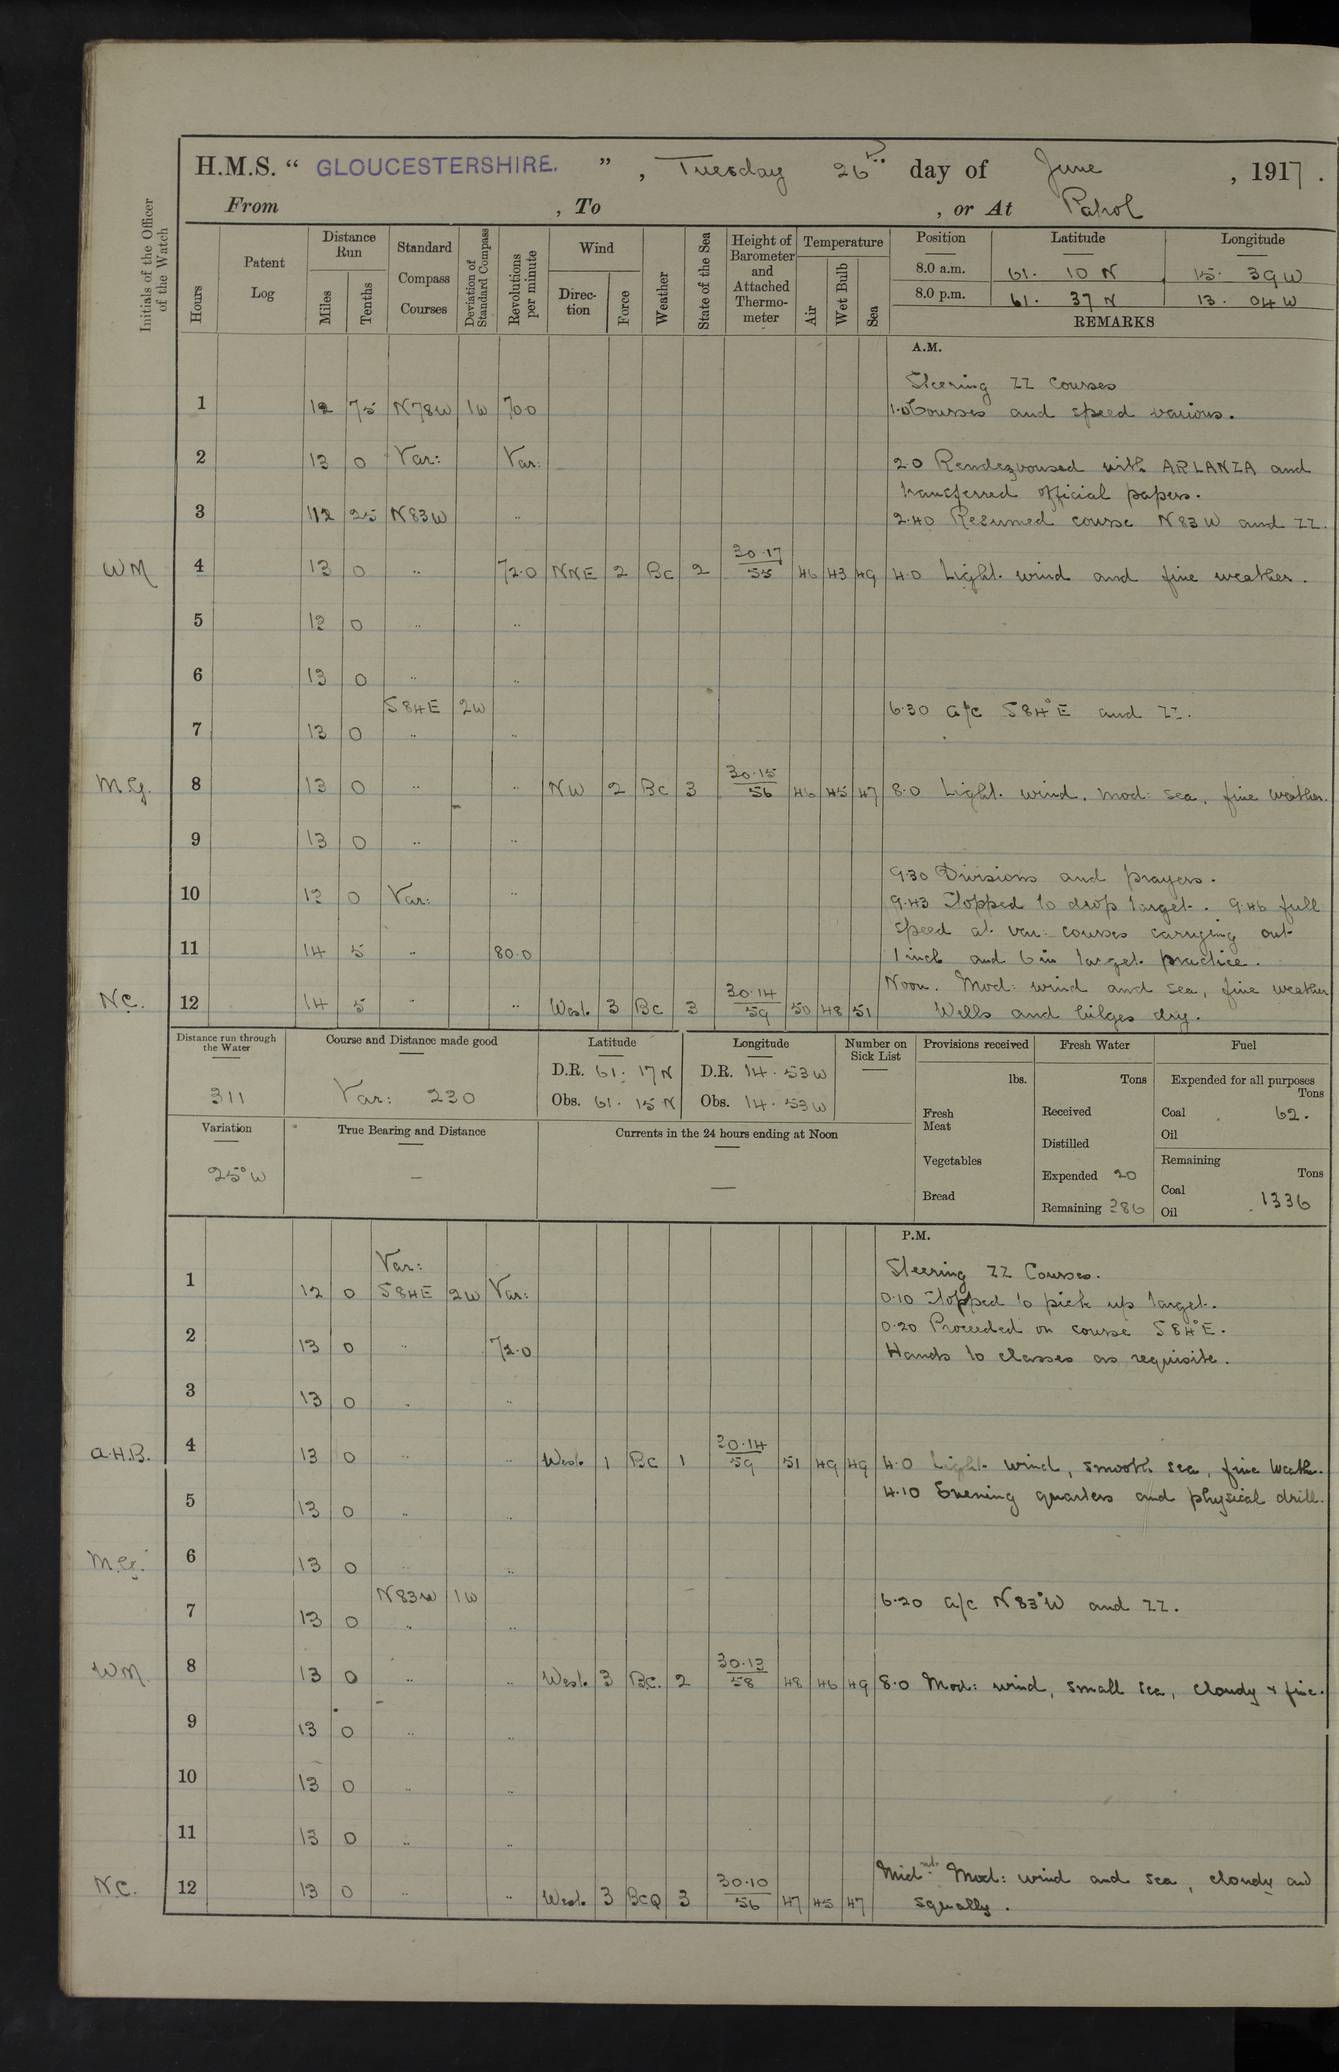 H.M.S. “ GLOUCESTERSHIRE. ” , Tuesday 26th day of June , 1917 .
From , To , or At Patrol
Initials of the Officer of the Watch
Hours
Patent Log
Distance Run
Miles
Tenths
Standard Compass Courses
Deviation of Standard Compass
Revolutions per minute
Wind
Direction
Force
Weather
State of the Sea
Height of Barometer and Attached Thermometer
Temperature
Air
Wet Bulb
Sea
Position Latitude Longitude
8.0 a.m. 61. 10 N 15. 39 W
8.0 p.m. 61. 37 N 13. 04 W
REMARKS
A.M.
Steering ZZ Courses
1 12 75 N78W 1W 70.0 1.0 Courses and speed various.
2 13 0 Var: Var: 2.0 Rendezvoused with ARLANZA and
transferred official papers.
3 12 25 N83W .. 2.40 Resumed course N83W and ZZ.
WM 4 13 0 .. 72.0 NNE 2 BC 2 30.17 55 46 43 49 4.0 Light wind and fine weather.
5 12 0 .. ..
6 13 0 .. ..
S84E 2W 6.30 a/c S84°E and ZZ.
7 13 0 .. ..
M.G. 8 13 0 .. .. NW 2 BC 3 30.15 56 46 45 47 8.0 Light wind. Mod: sea, fine weather.
9 13 0 .. ..
9.30 Divisions and prayers.
10 12 0 Var: .. 9.43 Stopped to drop target. 9.46 full
speed at var: courses carrying out
11 14 5 .. 80.0 1 inch and 6 in target practice.
Noon. Mod: wind and sea, fine weather
N.C. 12 14 5 .. .. West. 3 BC 3 30.14 59 50 48 51 Wells and bilges dry.
Distance run through the Water
311
Course and Distance made good
Var: 230
Latitude
D.R. 61. 17 N
Obs. 61. 15 N
Longitude
D.R. 14. 53 W
Obs. 14. 53 W
Number on Sick List
Provisions received
lbs.
Fresh Meat
Vegetables
Bread
Fresh Water
Tons
Received
Distilled
Expended 20
Remaining 386
Fuel
Expended for all purposes
Tons
Coal 62.
Oil
Remaining
Tons
Coal 1336
Oil
Variation
25°W
True Bearing and Distance
—
Currents in the 24 hours ending at Noon
—
P.M.
Var: Steering ZZ Courses.
1 12 0 S84E 2W Var: 0.10 Stopped to pick up target.
0.20 Proceeded on course S84°E.
2 13 0 .. 72.0 Hands to classes as requisite.
3 13 0 .. ..
A.H.B. 4 13 0 .. .. West. 1 BC 1 30.14 59 51 49 49 4.0 Light wind, smooth sea, fine weather.
4.10 Evening quarters and physical drill.
5 13 0 .. ..
M.G. 6 13 0 .. ..
N83W 1W 6.20 a/c N83°W and ZZ.
7 13 0 .. ..
WM 8 13 0 .. .. West. 3 BC. 2 30.13 58 48 46 49 8.0 Mod: wind, small sea, cloudy & fine.
9 13 0 .. ..
10 13 0 .. ..
11 13 0 .. ..
Midnt. Mod: wind and sea, cloudy and
N.C. 12 13 0 .. .. West. 3 BCQ 3 30.10 56 47 45 47 squally.